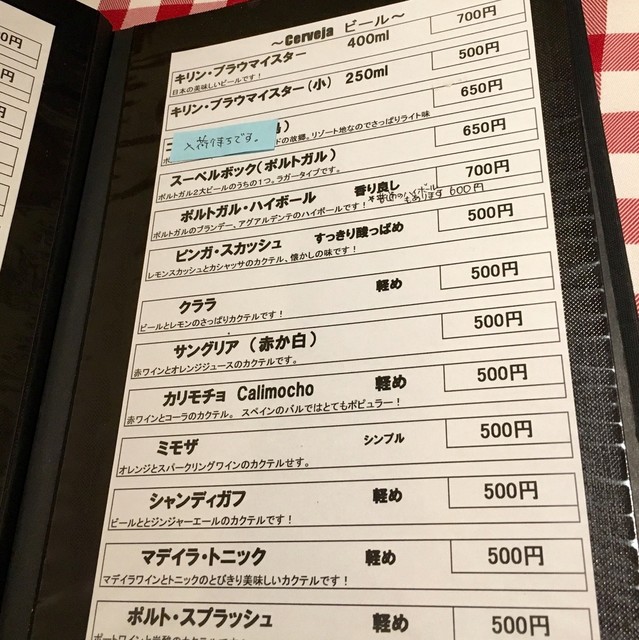 ～Cerveja ビール～
キリン・ブラウマイスター 400ml 700円
日本の美味しいビールです！
キリン・ブラウマイスター（小） 250ml 500円
入荷待ちです。
650円
の故郷。リゾート地なのでさっぱりライト味
スーペルボック（ポルトガル） 650円
ポルトガル2大ビールのうちの1つ。ラガータイプです。
ポルトガル・ハイボール 香り良し 700円
ポルトガルのブランデー、アグアルデンテのハイボールです！
*普通のハイボール
もあります 600円
ピンガ・スカッシュ すっきり酸っぱめ 500円
レモンスカッシュとカシャッサのカクテル、懐かしの味です！
クララ 軽め 500円
ビールとレモンのさっぱりカクテルです！
サングリア（赤か白） 500円
赤ワインとオレンジジュースのカクテルです。
カリモチョ Calimocho 軽め 500円
赤ワインとコーラのカクテル。 スペインのバルではとてもポピュラー！
ミモザ シンプル 500円
オレンジとスパークリングワインのカクテルせす。
シャンディガフ 軽め 500円
ビールととジンジャーエールのカクテルです！
マデイラ・トニック 軽め 500円
マデイラワインとトニックのとびきり美味しいカクテルです！
ポルト・スプラッシュ 軽め 500円